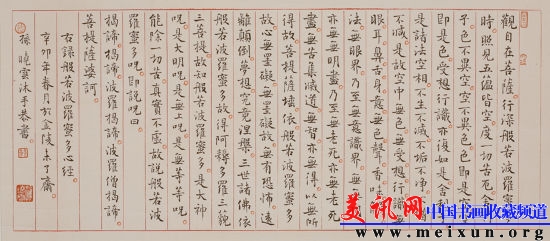 觀自在菩薩行深般若波羅蜜多
時照見五蘊皆空度一切苦厄舍利
子色不異空空不異色色即是空空
即是色受想行識亦復如是舍利子
是諸法空相不生不滅不垢不淨不增
不減是故空中無色無受想行識無
眼耳鼻舌身意無色聲香味觸
法無眼界乃至無意識界無無明
亦無無明盡乃至無老死亦無老死
盡無苦集滅道無智亦無得以無所
得故菩提薩埵依般若波羅蜜多
故心無罣礙無罣礙故無有恐怖遠
離顛倒夢想究竟涅槃三世諸佛依
般若波羅蜜多故得阿耨多羅三藐
三菩提故知般若波羅蜜多是大神
呪是大明呪是無上呪是無等等呪
能除一切苦真實不虛故說般若波
羅蜜多呪即說呪曰
揭諦揭諦波羅揭諦波羅僧揭諦
菩提薩婆訶
右錄般若波羅蜜多心經
辛卯年春月於金陵未了齋
孫曉雲沐手恭書
美讯网 中国书画收藏频道
www.meixun.org